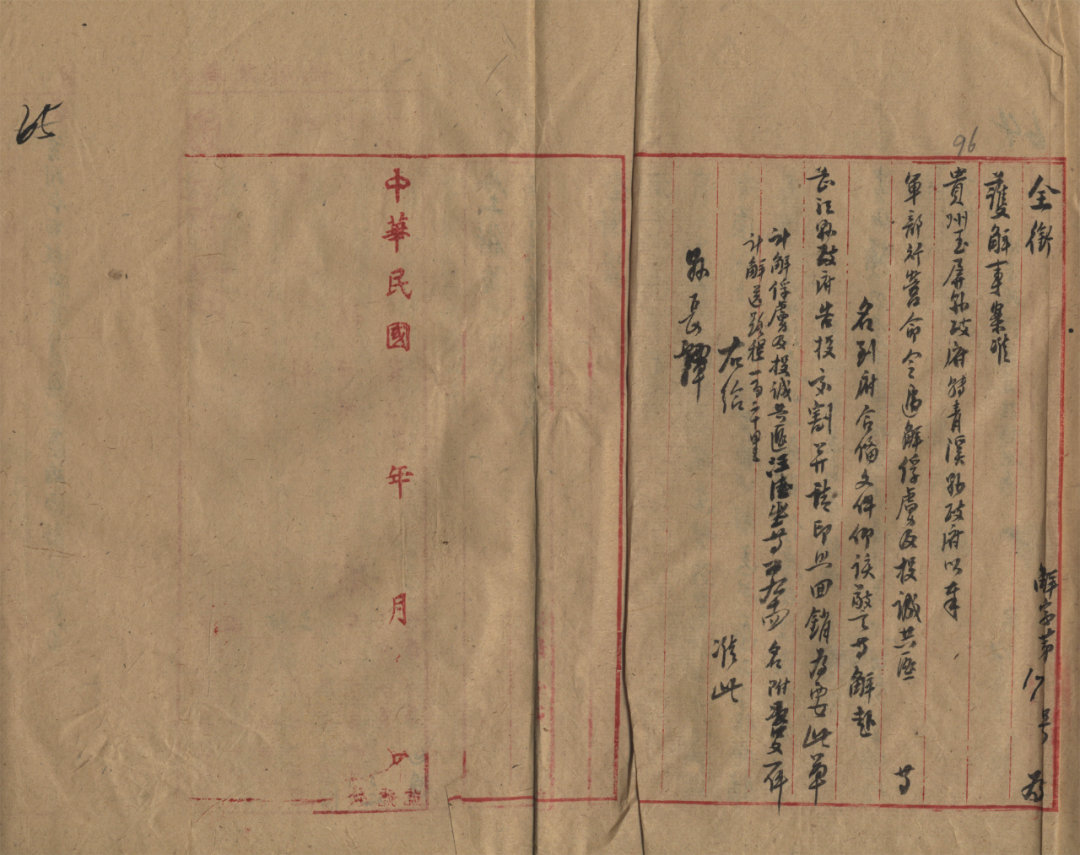 96
全銜 解字第17号 為
護解事案准
貴州玉屏縣政府轉青溪縣政府以奉
軍部行營命令遞解俘虜及投誠共匪 等
名到府合備文件仰該 等解赴
芷江縣政府告投交割并請印旦回銷為要此單
計解俘虜及投誠共匪汪 等 名附 文一件
計解送路程一百二十里
右給 准此
縣長
中華民國 年 月
65